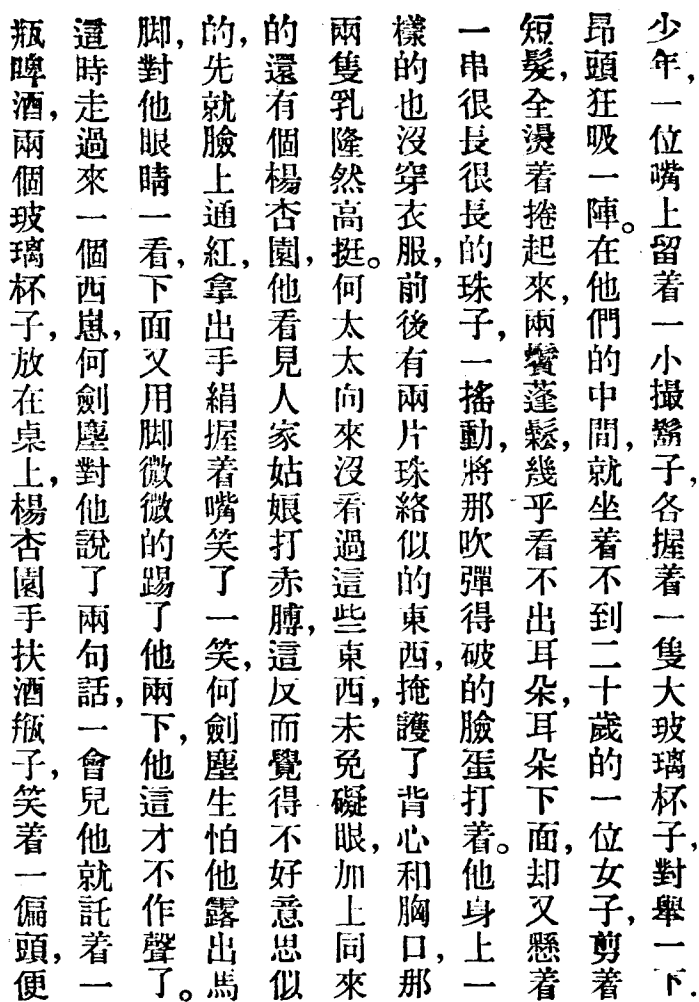 少年，一位嘴上留着一小撮鬍子，各握着一隻大玻璃杯子，對舉一下．
昂頭狂吸一陣。在他們的中間，就坐着不到二十歲的一位女子，剪着
短髮，全燙着捲起來，兩鬢蓬鬆，幾乎看不出耳朵，耳朵下面，却又懸着
一串很長很長的珠子，一搖動，將那吹彈得破的臉蛋打着。他身上一
樣的也沒穿衣服，前後有兩片珠絡似的東西，掩護了背心和胸口，那
兩隻乳隆然高挺。何太太向來沒看過這些東西，未免礙眼，加上同來
的還有個楊杏園，他看見人家姑娘打赤膊，這反而覺得不好意思似
的，先就臉上通紅，拿出手絹握着嘴笑了一笑，何劍塵生怕他露出馬
脚，對他眼睛一看，下面又用脚微微的踢了他兩下，他這才不作聲了。
這時走過來一個西崽，何劍塵對他說了兩句話，一會兒他就託着一
瓶啤酒，兩個玻璃杯子，放在桌上，楊杏園手扶酒瓶子，笑着一偏頭，便